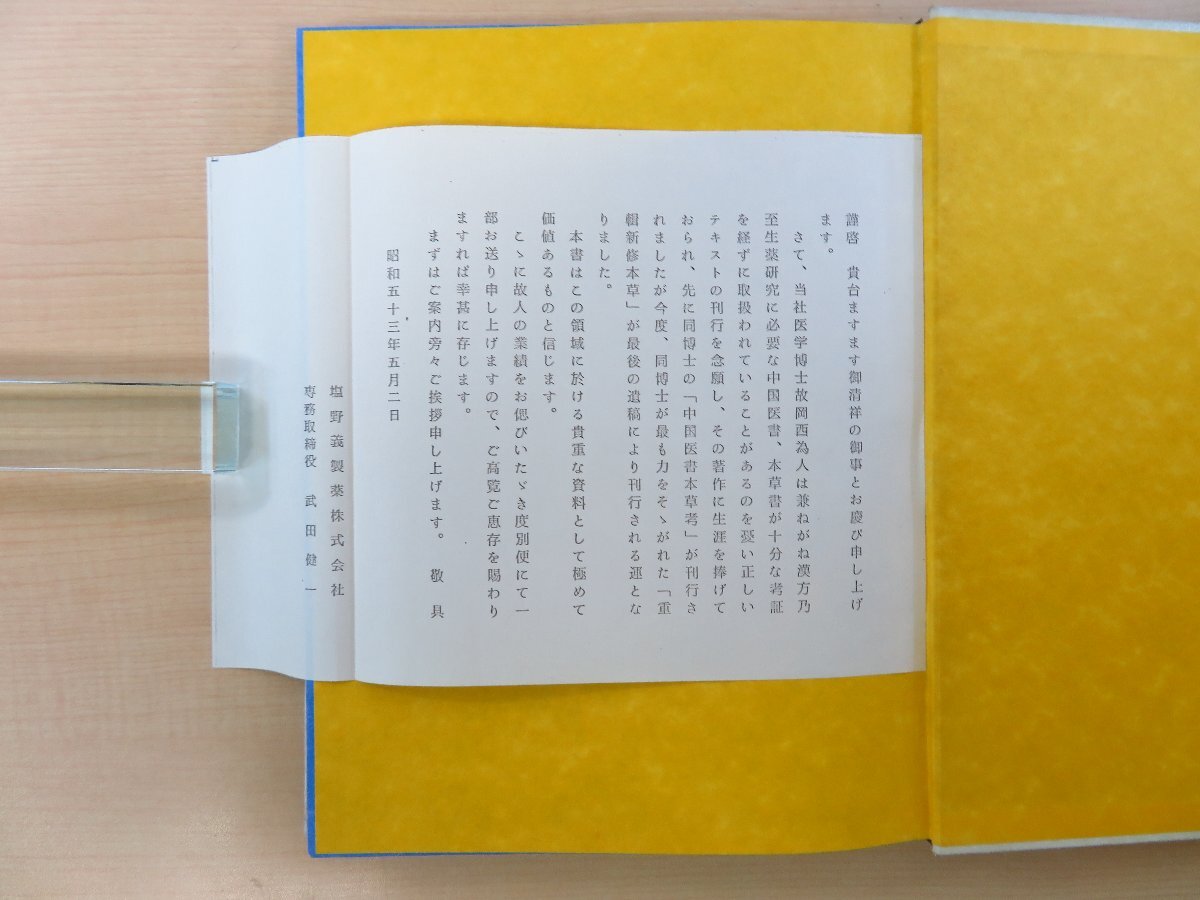 謹啓　貴台ますます御清祥の御事とお慶び申し上げ
ます。
さて、当社医学博士故岡西為人は兼ねがね漢方乃
至生薬研究に必要な中国医書、本草書が十分な考証
を経ずに取扱われていることがあるのを憂い正しい
テキストの刊行を念願し、その著作に生涯を捧げて
おられ、先に同博士の「中国医書本草考」が刊行さ
れましたが今度、同博士が最も力をそゝがれた「重
輯新修本草」が最後の遺稿により刊行される運とな
りました。
本書はこの領域に於ける貴重な資料として極めて
価値あるものと信じます。
こゝに故人の業績をお偲びいたゞき度別便にて一
部お送り申し上げますので、ご高覧ご恵存を賜わり
ますれば幸甚に存じます。
まずはご案内旁々ご挨拶申し上げます。　敬　具
昭和五十三年五月二日
塩野義製薬株式会社
専務取締役　武田健一